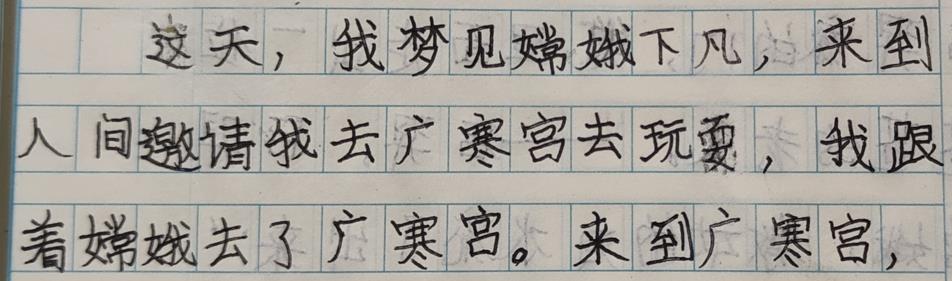 这天，我梦见嫦娥下凡，来到
人间邀请我去广寒宫去玩耍，我跟
着嫦娥去了广寒宫。来到广寒宫，